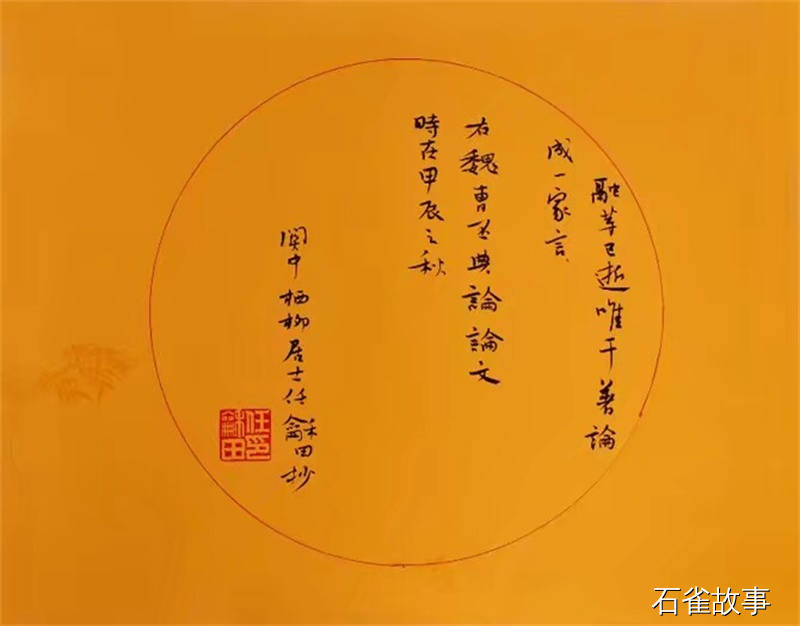 融等已逝唯干著論
成一家言
右魏曹丕典論論文
時在甲辰之秋
関中栖柳居士任龢田抄
任龢田印
石雀故事